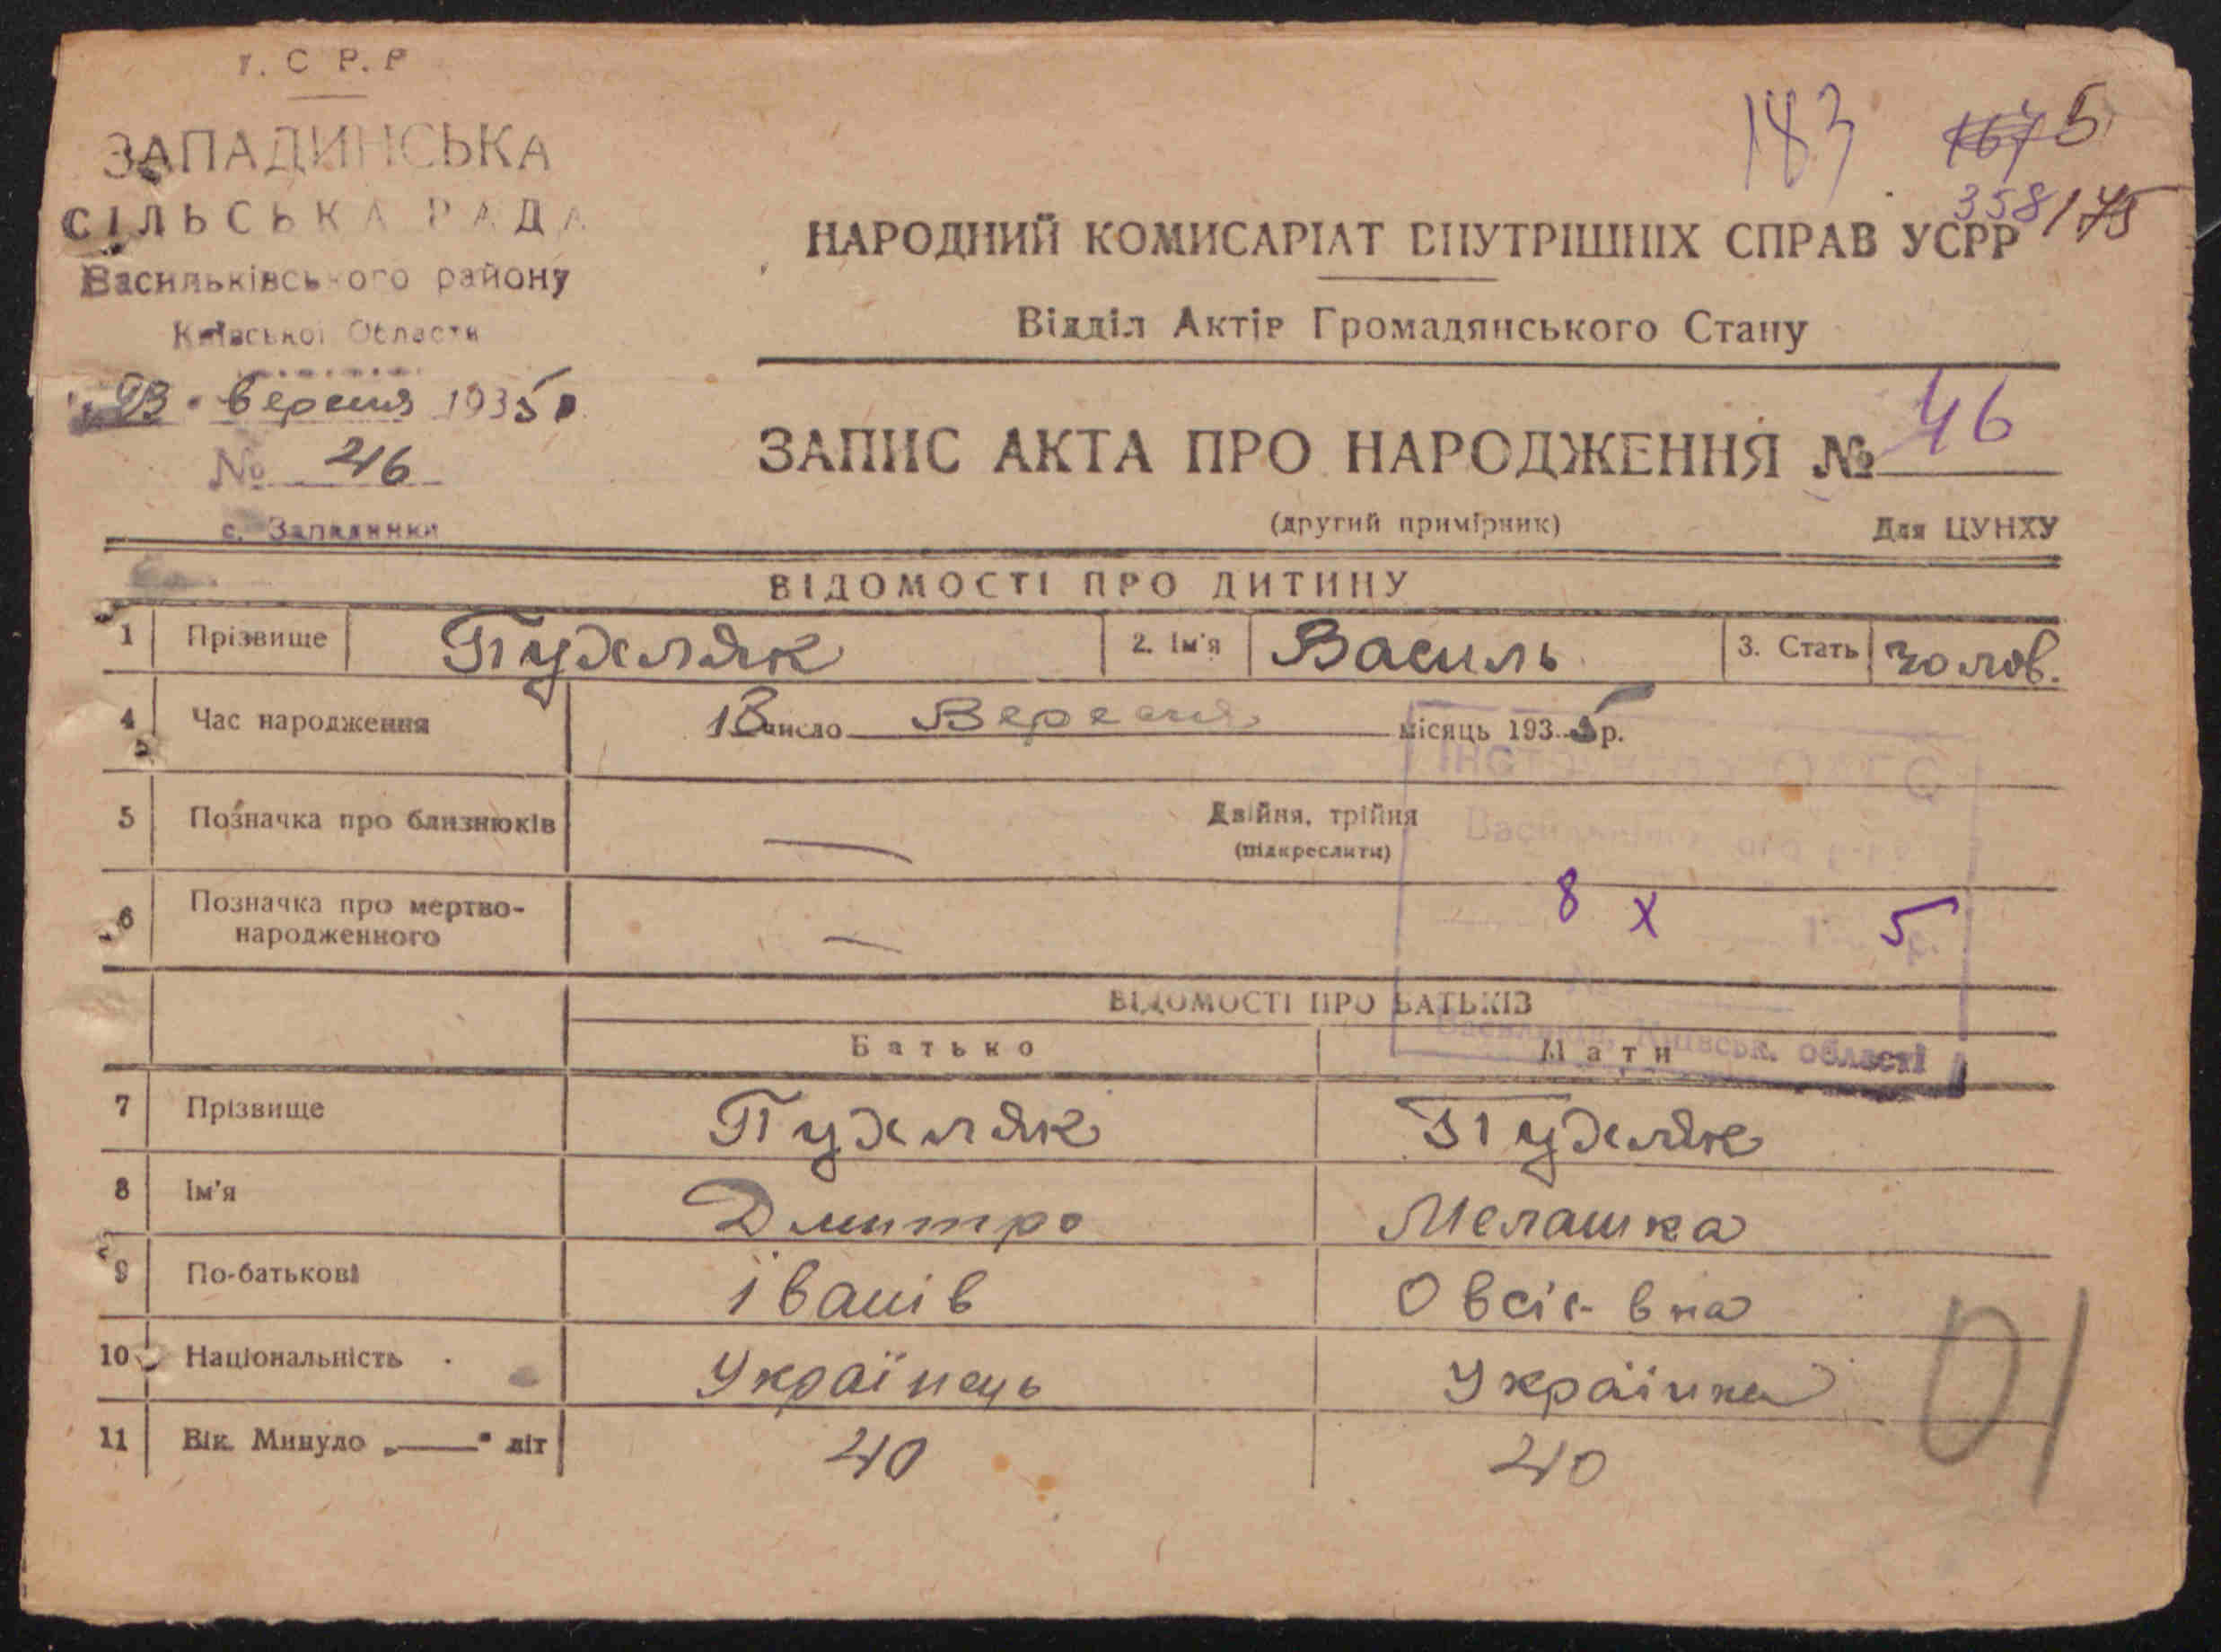 У.С.Р.Р
ЗАПАДИНСЬКА
СІЛЬСЬКА РАДА
Васильківського району
Київської Области
вересня 1935 р.
№ 46
с. Западинки
183 5
358 175
НАРОДНИЙ КОМИСАРІАТ ВНУТРІШНІХ СПРАВ УСРР
Відділ Актів Громадянського Стану
ЗАПИС АКТА ПРО НАРОДЖЕННЯ № 46
(другий примірник) Для ЦУНХУ
ВІДОМОСТІ ПРО ДИТИНУ
1 Прізвище Пухляк 2. Ім'я Василь 3. Стать чолов.
4 Час народження 13 число Вересня місяць 1935 р.
5 Позначка про близнюків — Двійня, трійня
(підкреслити)
6 Позначка про мертво-
народженного —
8 X 5
Васильків, Київськ. області
ВІДОМОСТІ ПРО БАТЬКІВ
Батько Мати
7 Прізвище Пухляк Пухляк
8 Ім'я Дмитро Мелашка
9 По-батькові Іванів Овсієвна
10 Національність Українець Українка
11 Вік. Минуло „—" літ 40 40
01